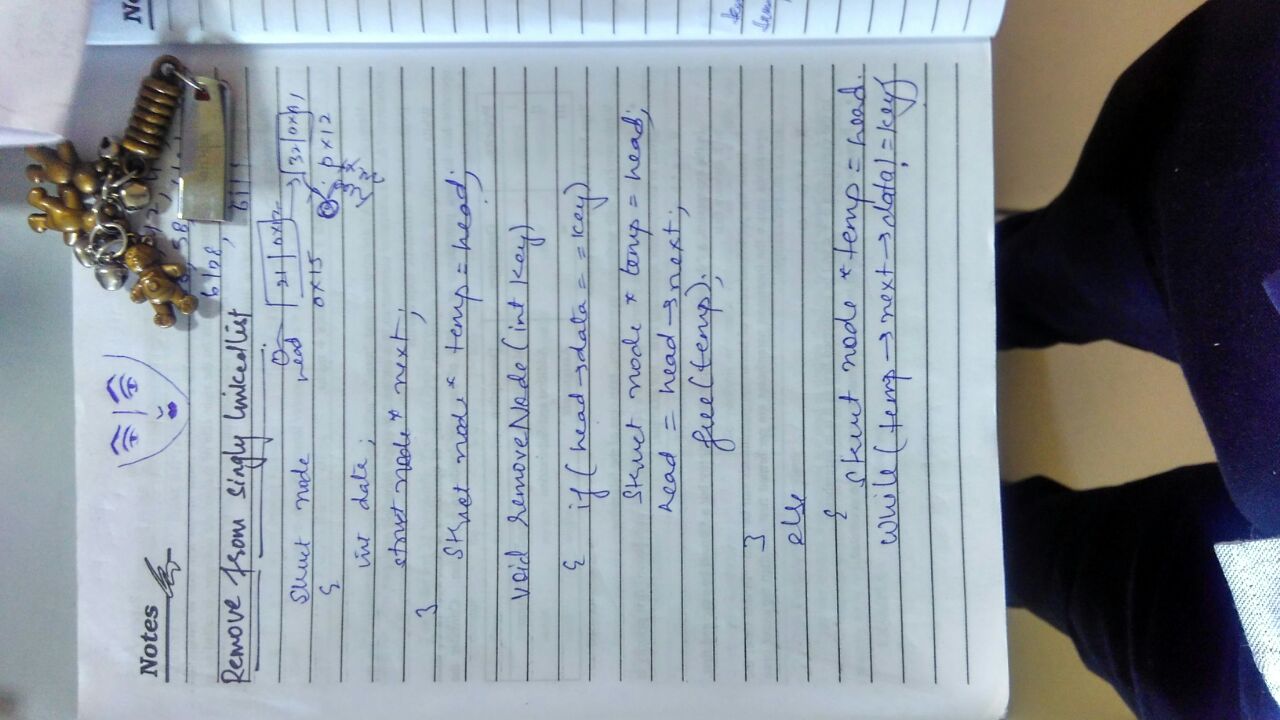 Notes
58,
6128,
Remove from singly linkedlist
head
21 | 0x12
0x15
32
0x12
struct node
{
int date;
struct node* next;
}
struct node* temp = head;
void removeNode (int key)
{ if ( head → data = = key)
struct node * temp = head;
head = head → next;
free(temp);
}
else
{
struct node *temp = head.
while ( temp → next → data! = key)